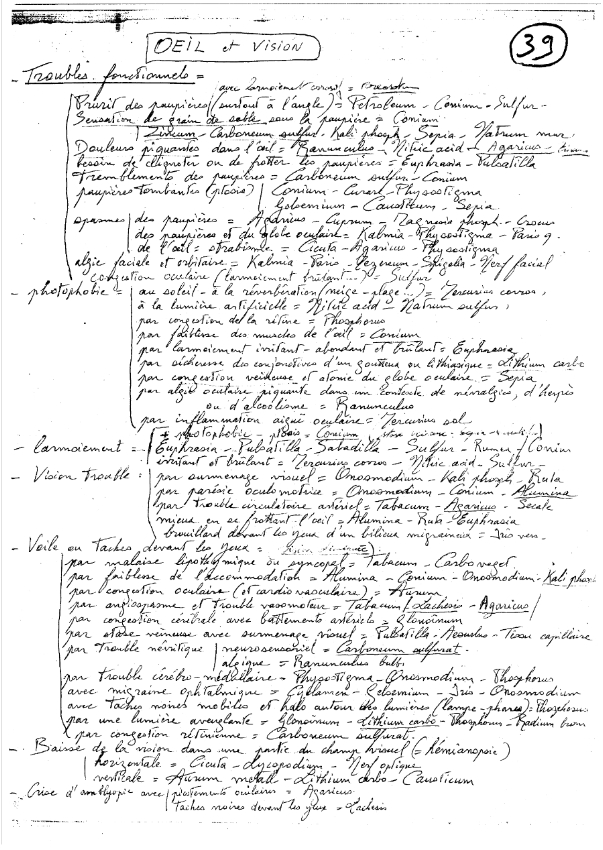 OEIL et VISION
39
- Troubles fonctionnels =
avec larmoiement corros =
Prurit des paupières (surtout à l'angle) = Petroleum - Conium - Sulfur -
Sensation de grain de sable sous la paupière = Conium
Zincum - Carboneum sulfur - Kali phosph - Sepia - Natrum mur.
Douleurs piquantes dans l'œil = Ranunculus - Nitric acid - Agaricus -
besoin de clignoter ou de frotter les paupières = Euphrasia - Pulsatilla
tremblements des paupières = Carboneum sulfur - Conium
paupières tombantes (ptosis) | Conium - Curare - Physostigma
Gelsemium - Causticum - Sepia
spasmes | des paupières = Agaricus - Cuprum - Magnesia phosph. - Crocus
des paupières et du globe oculaire = Kalmia - Physostigma - Paris q.
de l'œil = strabisme = Cicuta - Agaricus - Physostigma
algie faciale et orbitaire = Kalmia - Paris - Mezereum - Spigelia - Nerf facial
congestion oculaire (larmoiement brûlant...) = Sulfur
- photophobie = | au soleil - à la réverbération (neige - plage...) = Mercurius corros,
à la lumière artificielle = Nitric acid - Natrum sulfur,
par congestion de la rétine = Phosphorus
par faiblesse des muscles de l'œil = Conium
par larmoiement irritant - abondant et brûlant = Euphrasia
par sécheresse des conjonctives d'un goutteux ou lithiasique = Lithium carb
par congestion veineuse et atonie du globe oculaire = Sepia
par algie oculaire piquante dans un contexte de névralgies, d'herpès
ou d'alcoolisme = Ranunculus
par inflammation aiguë oculaire = Mercurius sol
+ photophobie - ptosis = Conium
- larmoiement = Euphrasia - Pulsatilla - Sabadilla - Sulfur - Rumex / Conium
irritant et brûlant = Mercurius corros - Nitric acid - Sulfur
- Vision trouble = | par surmenage visuel = Onosmodium - Kali phosph - Ruta
par parésie oculomotrice = Onosmodium - Conium - Alumina
par trouble circulatoire artériel = Tabacum - Agaricus - Secale
mieux en se frottant l'œil = Alumina - Ruta - Euphrasia
brouillard devant les yeux d'un bilieux migraineux = Iris vers.
- Voile ou taches devant les yeux =
par malaise lipothymique ou syncopal = Tabacum - Carbo veget
par faiblesse de l'accommodation = Alumina - Conium - Onosmodium - Kali phos
par congestion oculaire (et cardio vasculaire) = Aurum
par angiospasme et trouble vasomoteur = Tabacum / Lachesis - Agaricus /
par congestion cérébrale avec battements artériels = Glonoinum
par stase veineuse avec surmenage visuel = Pulsatilla - Aesculus - Tissu capillaire
par trouble névritique | neurosensoriel = Carboneum sulfurat.
algique = Ranunculus bulb
par trouble cérébro-médullaire = Physostigma - Onosmodium - Phosphorus
avec migraine ophtalmique = Cyclamen - Gelsemium - Iris - Onosmodium
avec taches noires mobiles et halo autour des lumières (lampe-phares) = Phosphorus
par une lumière aveuglante = Glonoinum - Lithium carbo - Phosphorus - Radium brom
par congestion rétinienne = Carboneum sulfurat.
- Baisse de la vision dans une partie du champ visuel (= hémianopsie)
| horizontale = Cicuta - Lycopodium - Nerf optique
verticale = Aurum metall - Lithium carbo - Causticum
- Crise d'amblyopie avec | picotements oculaires = Agaricus
taches noires devant les yeux = Lachesis